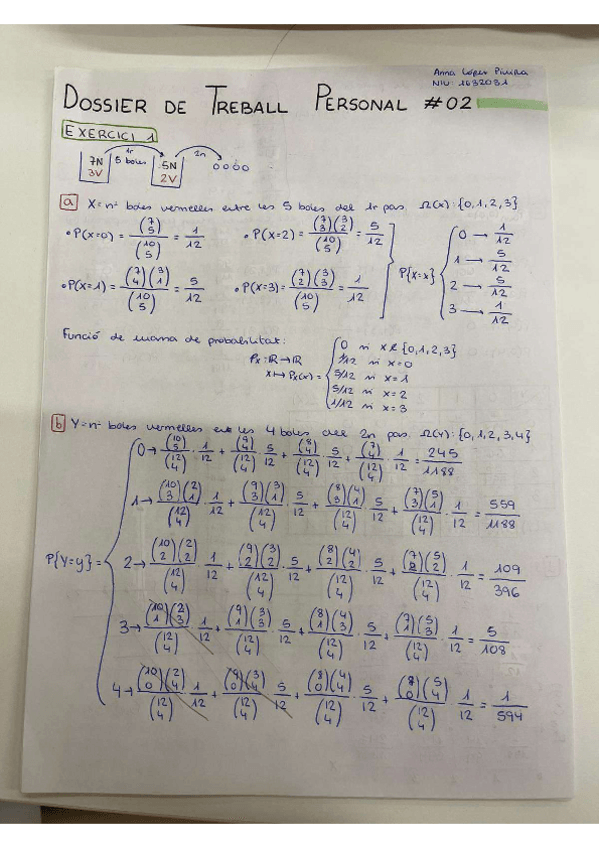 Anna López Piniña
NIU: 1632031
DOSSIER DE TREBALL PERSONAL #02
EXERCICI 1
7N 3V 1r 5 boles 5N 2V 2n
a X=nº boles vermelles entre les 5 boles del 1r pas. Ω(x):{0,1,2,3}
• P(x=0) = (7 5)/(10 5) = 1/12 • P(x=2) = (7 3)(3 2)/(10 5) = 5/12
• P(x=1) = (7 4)(3 1)/(10 5) = 5/12 • P(x=3) = (7 2)(3 3)/(10 5) = 1/12
P{X=x} { 0 → 1/12
1 → 5/12
2 → 5/12
3 → 1/12
Funció de massa de probabilitat:
Px: ℝ → ℝ
x ↦ Px(x) = { 0 si x ∉ {0,1,2,3}
1/12 si x=0
5/12 si x=1
5/12 si x=2
1/12 si x=3
b Y=nº boles vermelles entre les 4 boles del 2n pas. Ω(Y):{0,1,2,3,4}
P{Y=y} = { 0 → (10 5)/(12 4) · 1/12 + (9 4)/(12 4) · 5/12 + (8 4)/(12 4) · 5/12 + (7 4)/(12 4) · 1/12 = 245/1188
1 → (10 3)(2 1)/(12 4) · 1/12 + (9 3)(3 1)/(12 4) · 5/12 + (8 3)(4 1)/(12 4) · 5/12 + (7 3)(5 1)/(12 4) · 1/12 = 559/1188
2 → (10 2)(2 2)/(12 4) · 1/12 + (9 2)(3 2)/(12 4) · 5/12 + (8 2)(4 2)/(12 4) · 5/12 + (7 2)(5 2)/(12 4) · 1/12 = 109/396
3 → (10 1)(2 3)/(12 4) · 1/12 + (9 1)(3 3)/(12 4) · 5/12 + (8 1)(4 3)/(12 4) · 5/12 + (7 1)(5 3)/(12 4) · 1/12 = 5/108
4 → (10 0)(2 4)/(12 4) · 1/12 + (9 0)(3 4)/(12 4) · 5/12 + (8 0)(4 4)/(12 4) · 5/12 + (8 0)(5 4)/(12 4) · 1/12 = 1/594